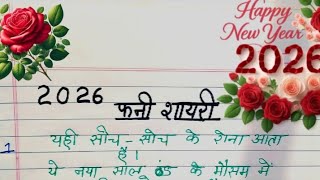 Happy
New Year
2026
2026 फनी शायरी
यही सोच-सोच के रोना आता
1
है।
ये नया साल ठंड के मौसम में